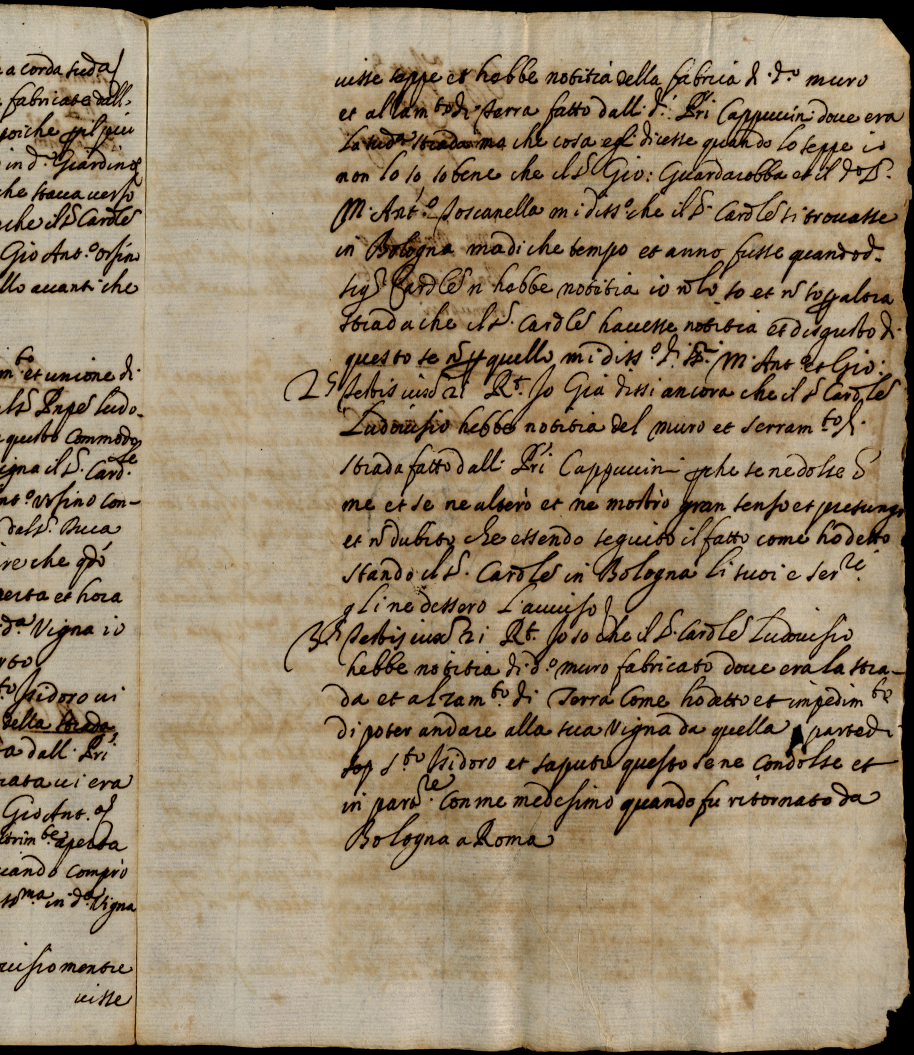 e a corda sud.a
e fabricate dall.
poiche
in d.o Giardino
che staua uerso
che il S.r Card.le
Gio Ant.o Orsin
llo auanti che
m.to et unione di
S.r Ludo-
questo Commodo
igna il S.r Card.le
Ant.o Vrsino con-
del S.r Duca
re che
perta et hora
d.a Vigna io
S.to Isidoro ui
della strada
a dall. P.ri
rata ui era
Gio Ant.o
aperta
uando comprò
in d.a Vigna
uisio mentre
uisse
uisse seppe et hebbe notitia della fabrica di d.o muro
et alzam.to di Terra fatto dall. d.i P.ri Cappuccini doue era
la sud.a strada ma che cosa egli dicesse quando lo seppe io
non lo so so bene che il S.r Gio: Guardarobba et il d.o S.r
M. Ant.o Toscanella mi diss.o che il S.r Card.le si trouasse
in Bologna ma di che tempo et anno fusse quando d.o
Sig.r Card.le n hebbe notitia io n lo so et n so p altra
strada che il S.r Card.le hauesse notitia et disgusto di
questo se n p quello mi diss.o di S.ri M. Ant.o et Gio:
2 Testis R.t Io Già dissi ancora che il S.r Card.le
Ludouisio hebbe notitia del muro et serram.to di
strada fatto dall. P.ri Cappuccini perche se ne dolse c
me et se ne alterò et ne mostrò gran senso et
et n dubito che essendo seguito il fatto come ho detto
stando il S.r Card.le in Bologna li suoi e Ser.ri
gli ne dessero l'auuiso
3 Testis R.t Io so che il S.r Card.le Ludouisio
hebbe notitia di d.o muro fabricato doue era la stra-
da et alzam.to di Terra Come ho detto et impedim.to
di poter andare alla sua Vigna da quella parte di
sop S.to Isidoro et saputo questo se ne Condolse et
in part.re Con me medesimo quando fu ritornato da
Bologna a Roma